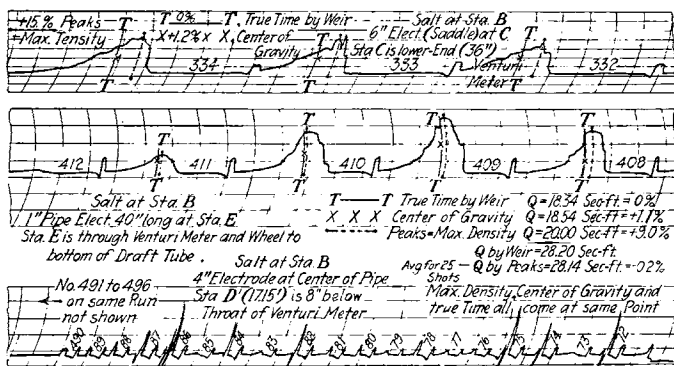 +15.% Peaks
=Max. Tensity
T 0% T. True Time by Weir
X+1.2% X X Center of
Gravity
Salt at Sta. B
6" Elect. (Saddle) at C
Sta C is lower-End (36")
Venturi
Meter
T T T
334 333 332
T T T
T T T T
412 411 410 409 408
T T T T
Salt at Sta. B
1" Pipe Elect. 40" long at Sta. E
Sta. E is through Venturi Meter and Wheel to
bottom of Draft Tube.
T T True Time by Weir Q=18.34 Sec-ft.=0%
X X X Center of Gravity Q=18.54 Sec-ft=+1.1%
Peaks=Max. Density Q=20.00 Sec-ft=+9.0%
Q by Weir=28.20 Sec-ft.
Avg for 25 Shots Q by Peaks=28.14 Sec-ft.=-02%
Max. Density, Center of Gravity and
true Time all come at same Point
Salt at Sta. B
4" Electrode at Center of Pipe
Sta D' (17.15') is 8" below
Throat of Venturi Meter
No. 491 to 496
on same Run
not shown
490 89 88 87 86 85 84 83 82 81 80 79 78 77 76 75 74 73 72